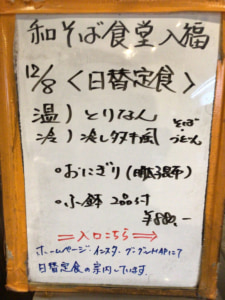 和そば食堂 入福
12/8 <日替定食>
温) とりなん
冷) 冷したぬき風 そば うどん
・おにぎり (明太子昆布)
・小鉢 2品付
¥880.-
⇒入口こちら⇒
ホームページ インスタ グーグルMAPにて
日替定食の案内しています。